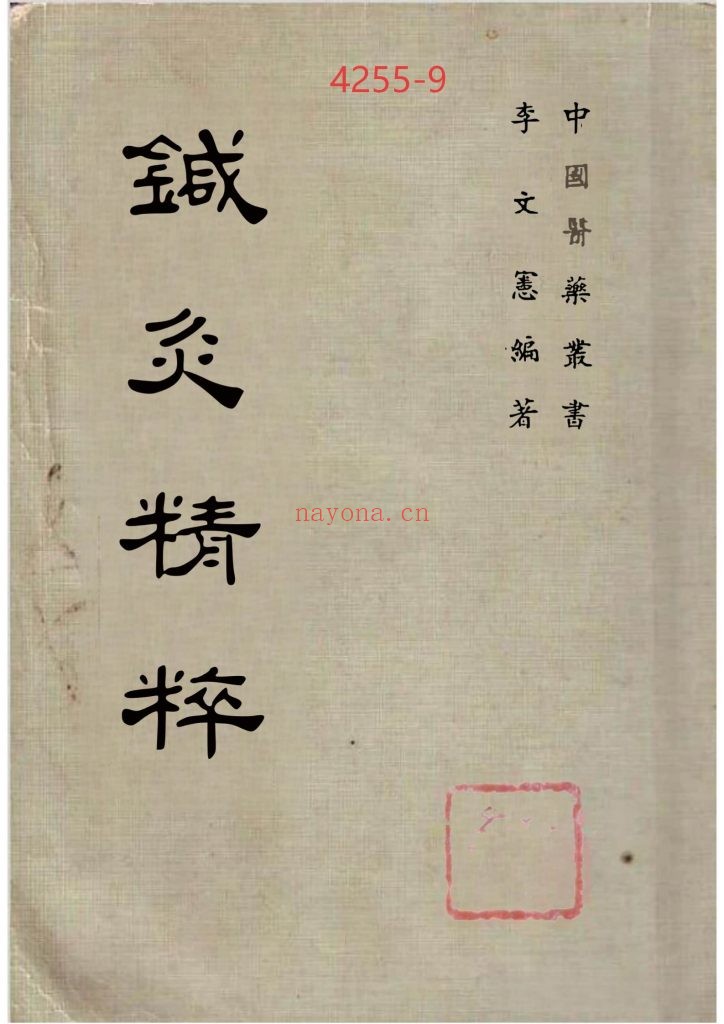 4255-9
中國藥叢書
李文憲編著
鍼灸精粹
nayona.cn